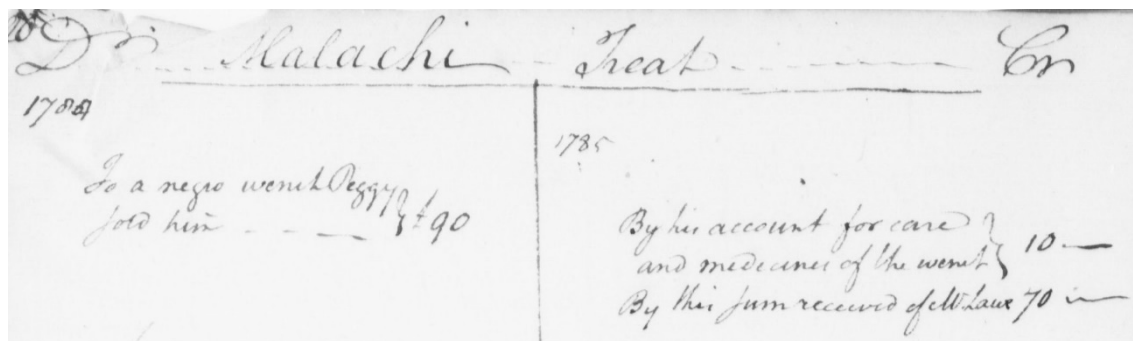 Dr Malachi Treat Cr
1784
To a negro wench Peggy
sold him £90
1785
By his account for care
and medicines of the wench 10
By this sum received of Mr Lawe 70